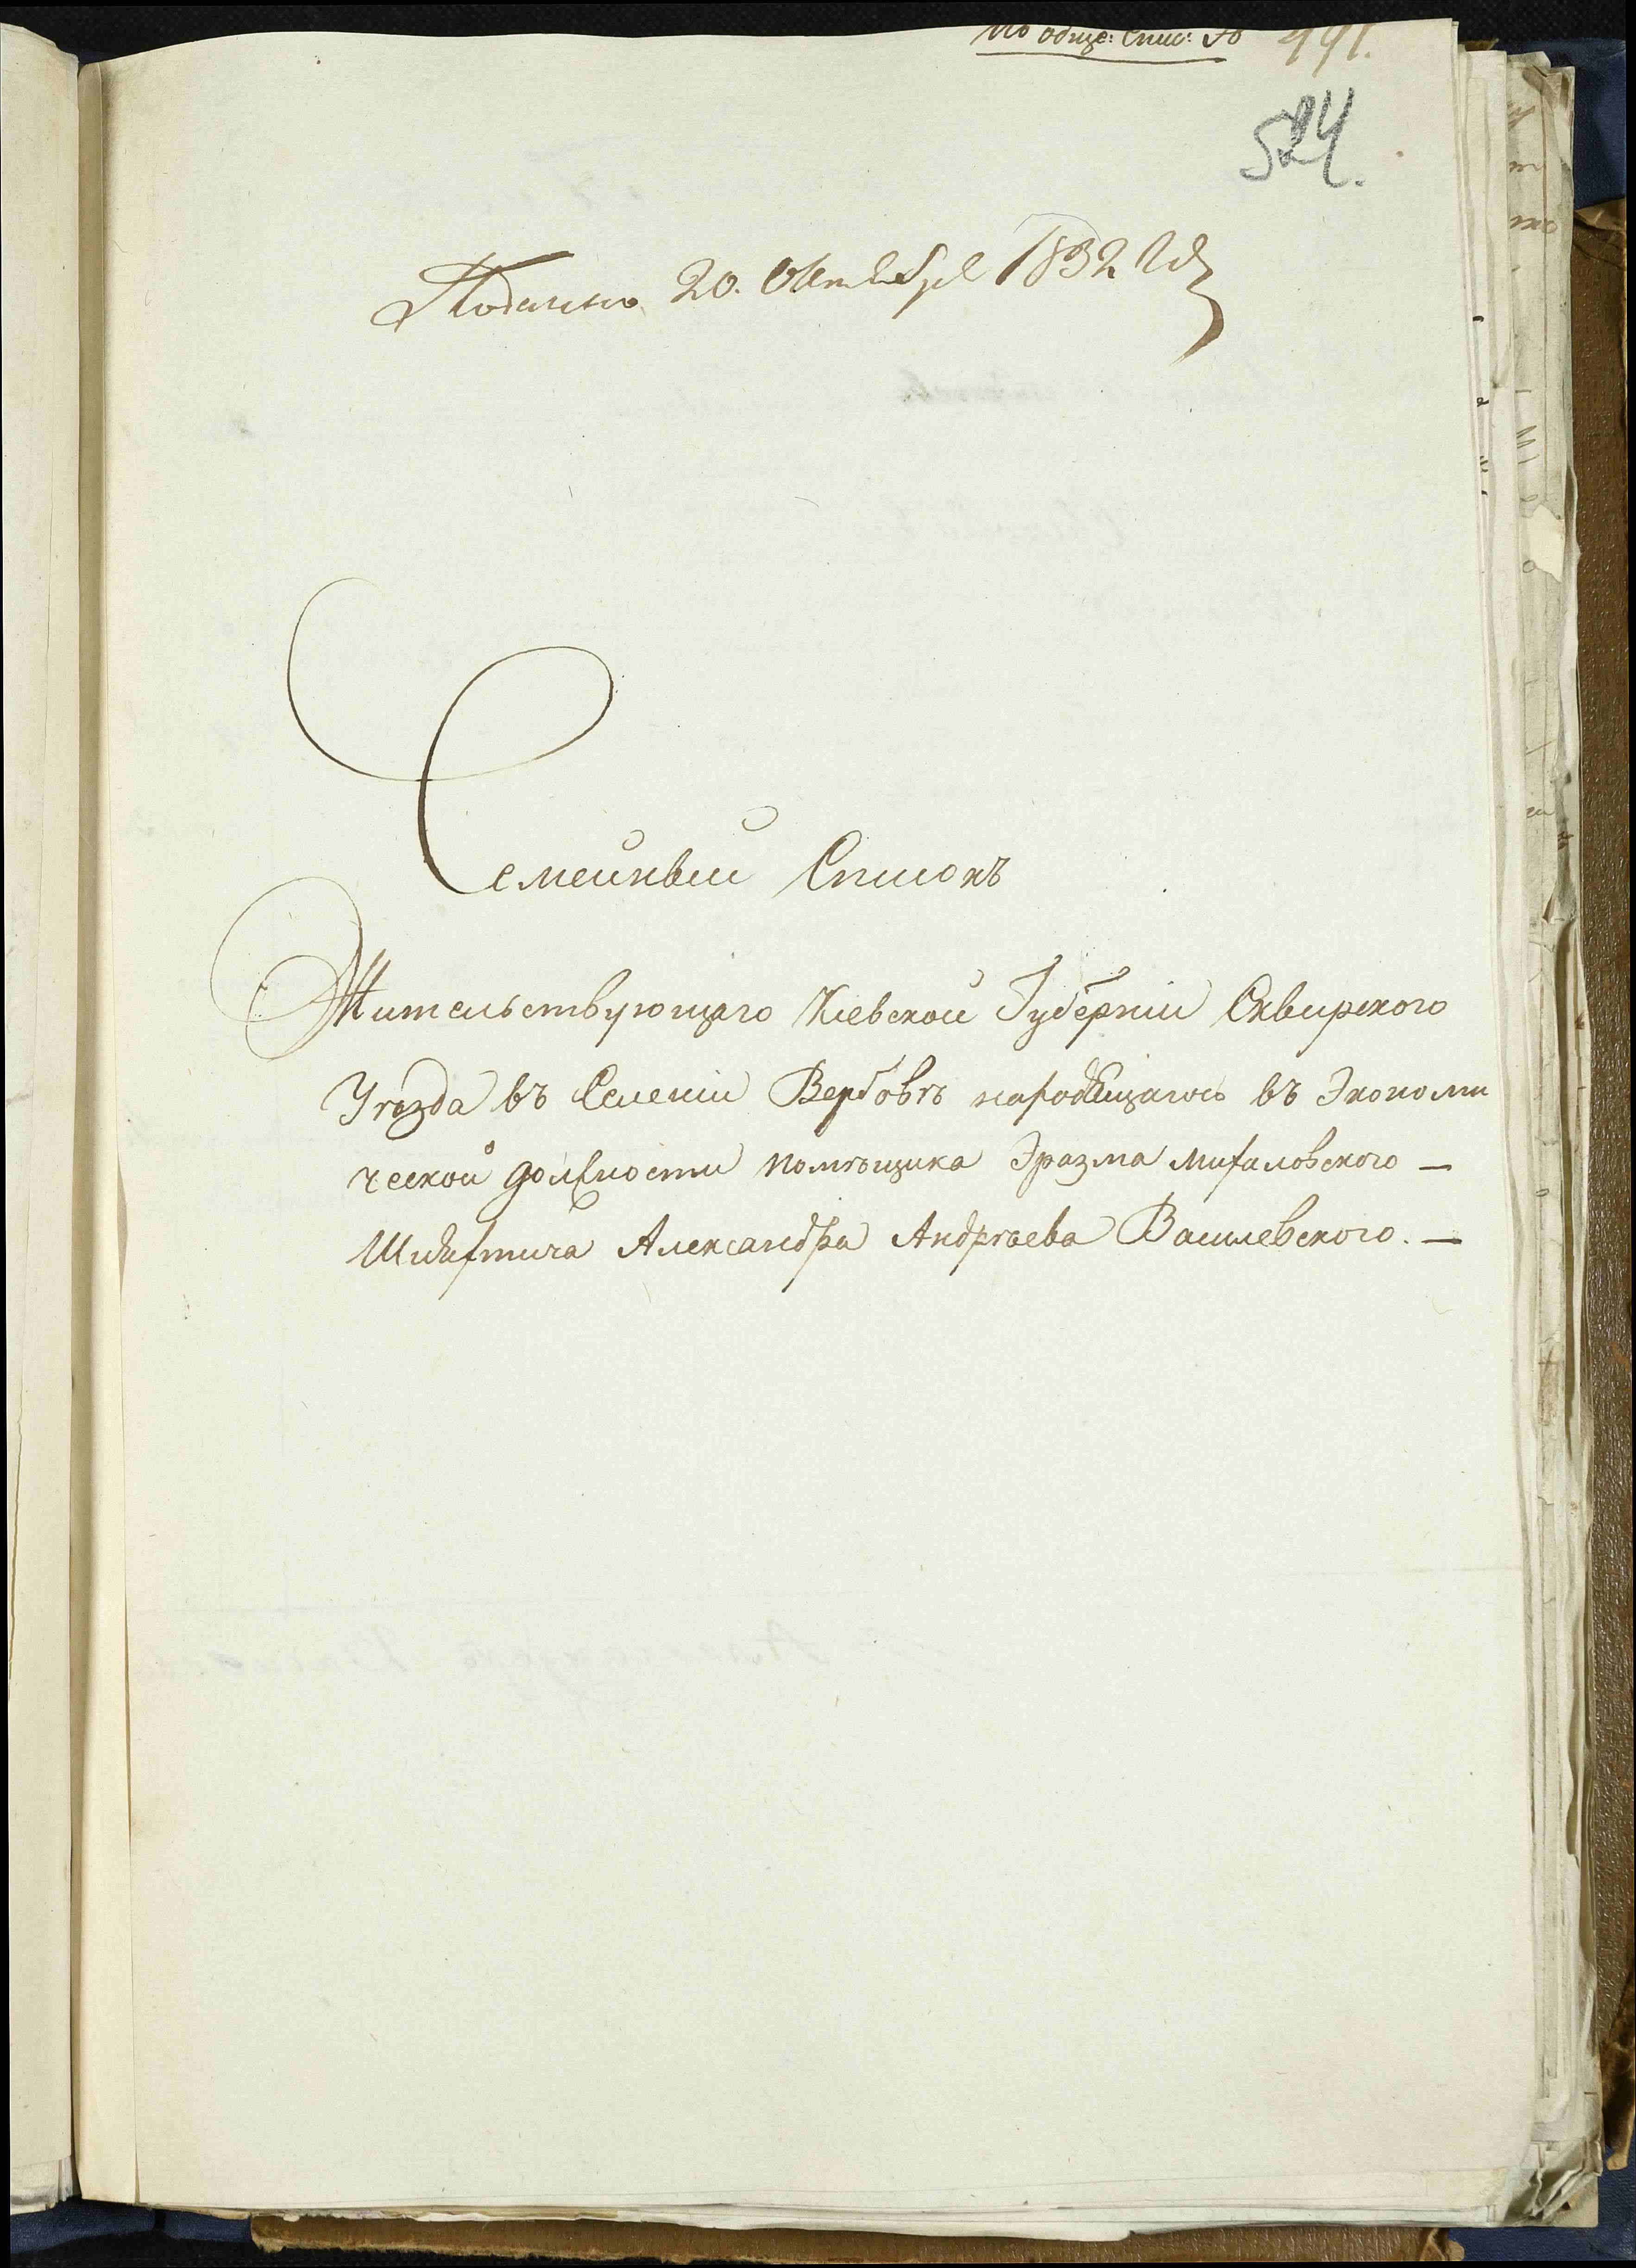 По обще: Спис: № 491.
524.
Подано 20. Октября 1832 Года
Семейный Списокъ
Жительствующаго Киевской Губерніи Сквирского
Уѣзда въ Селеніи Вербовѣ находящагось въ Экономи
ческой должности помѣщика Эразма Михаловского —
Шляхтича Александра Андрѣева Василевского. —